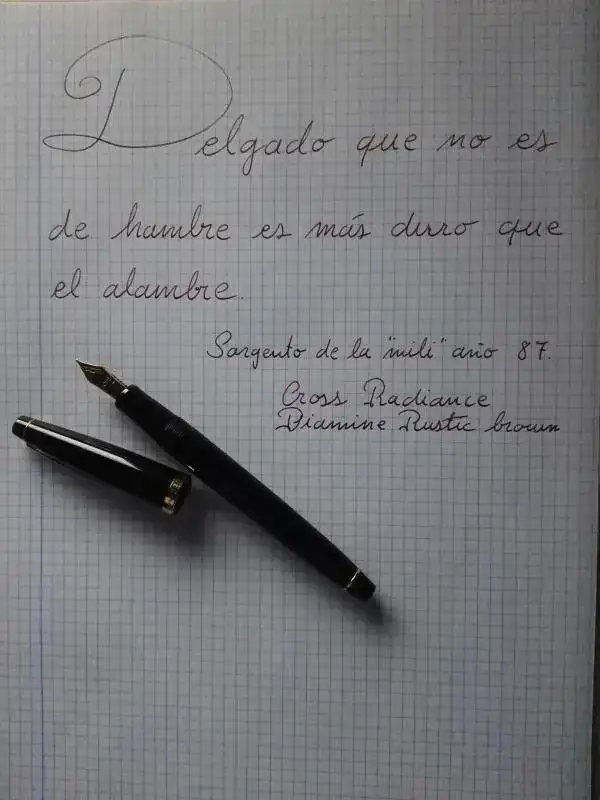 Delgado que no es
de hambre es más duro que
el alambre.
Sargento de la "mili" año 87.
Cross Radiance
Diamine Rustic brown